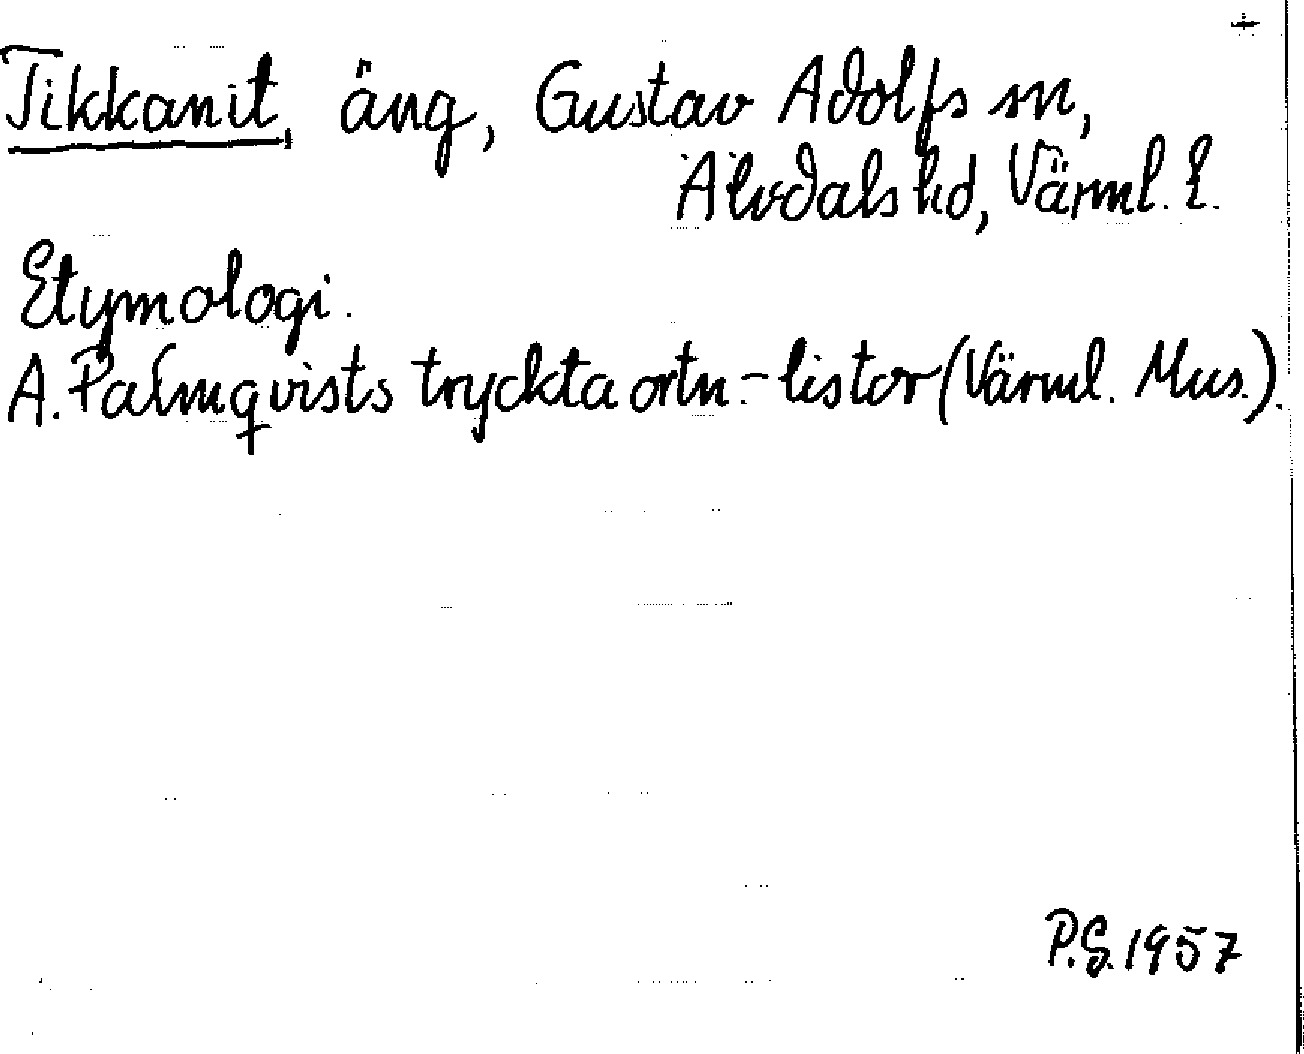 +
Tikkanit, äng, Gustav Adolfs sn,
Älvdals hd, Värml. l.
Etymologi.
A. Palmqvists tryckta ortn.-listor (Värml. Mus.).
P.S. 1957